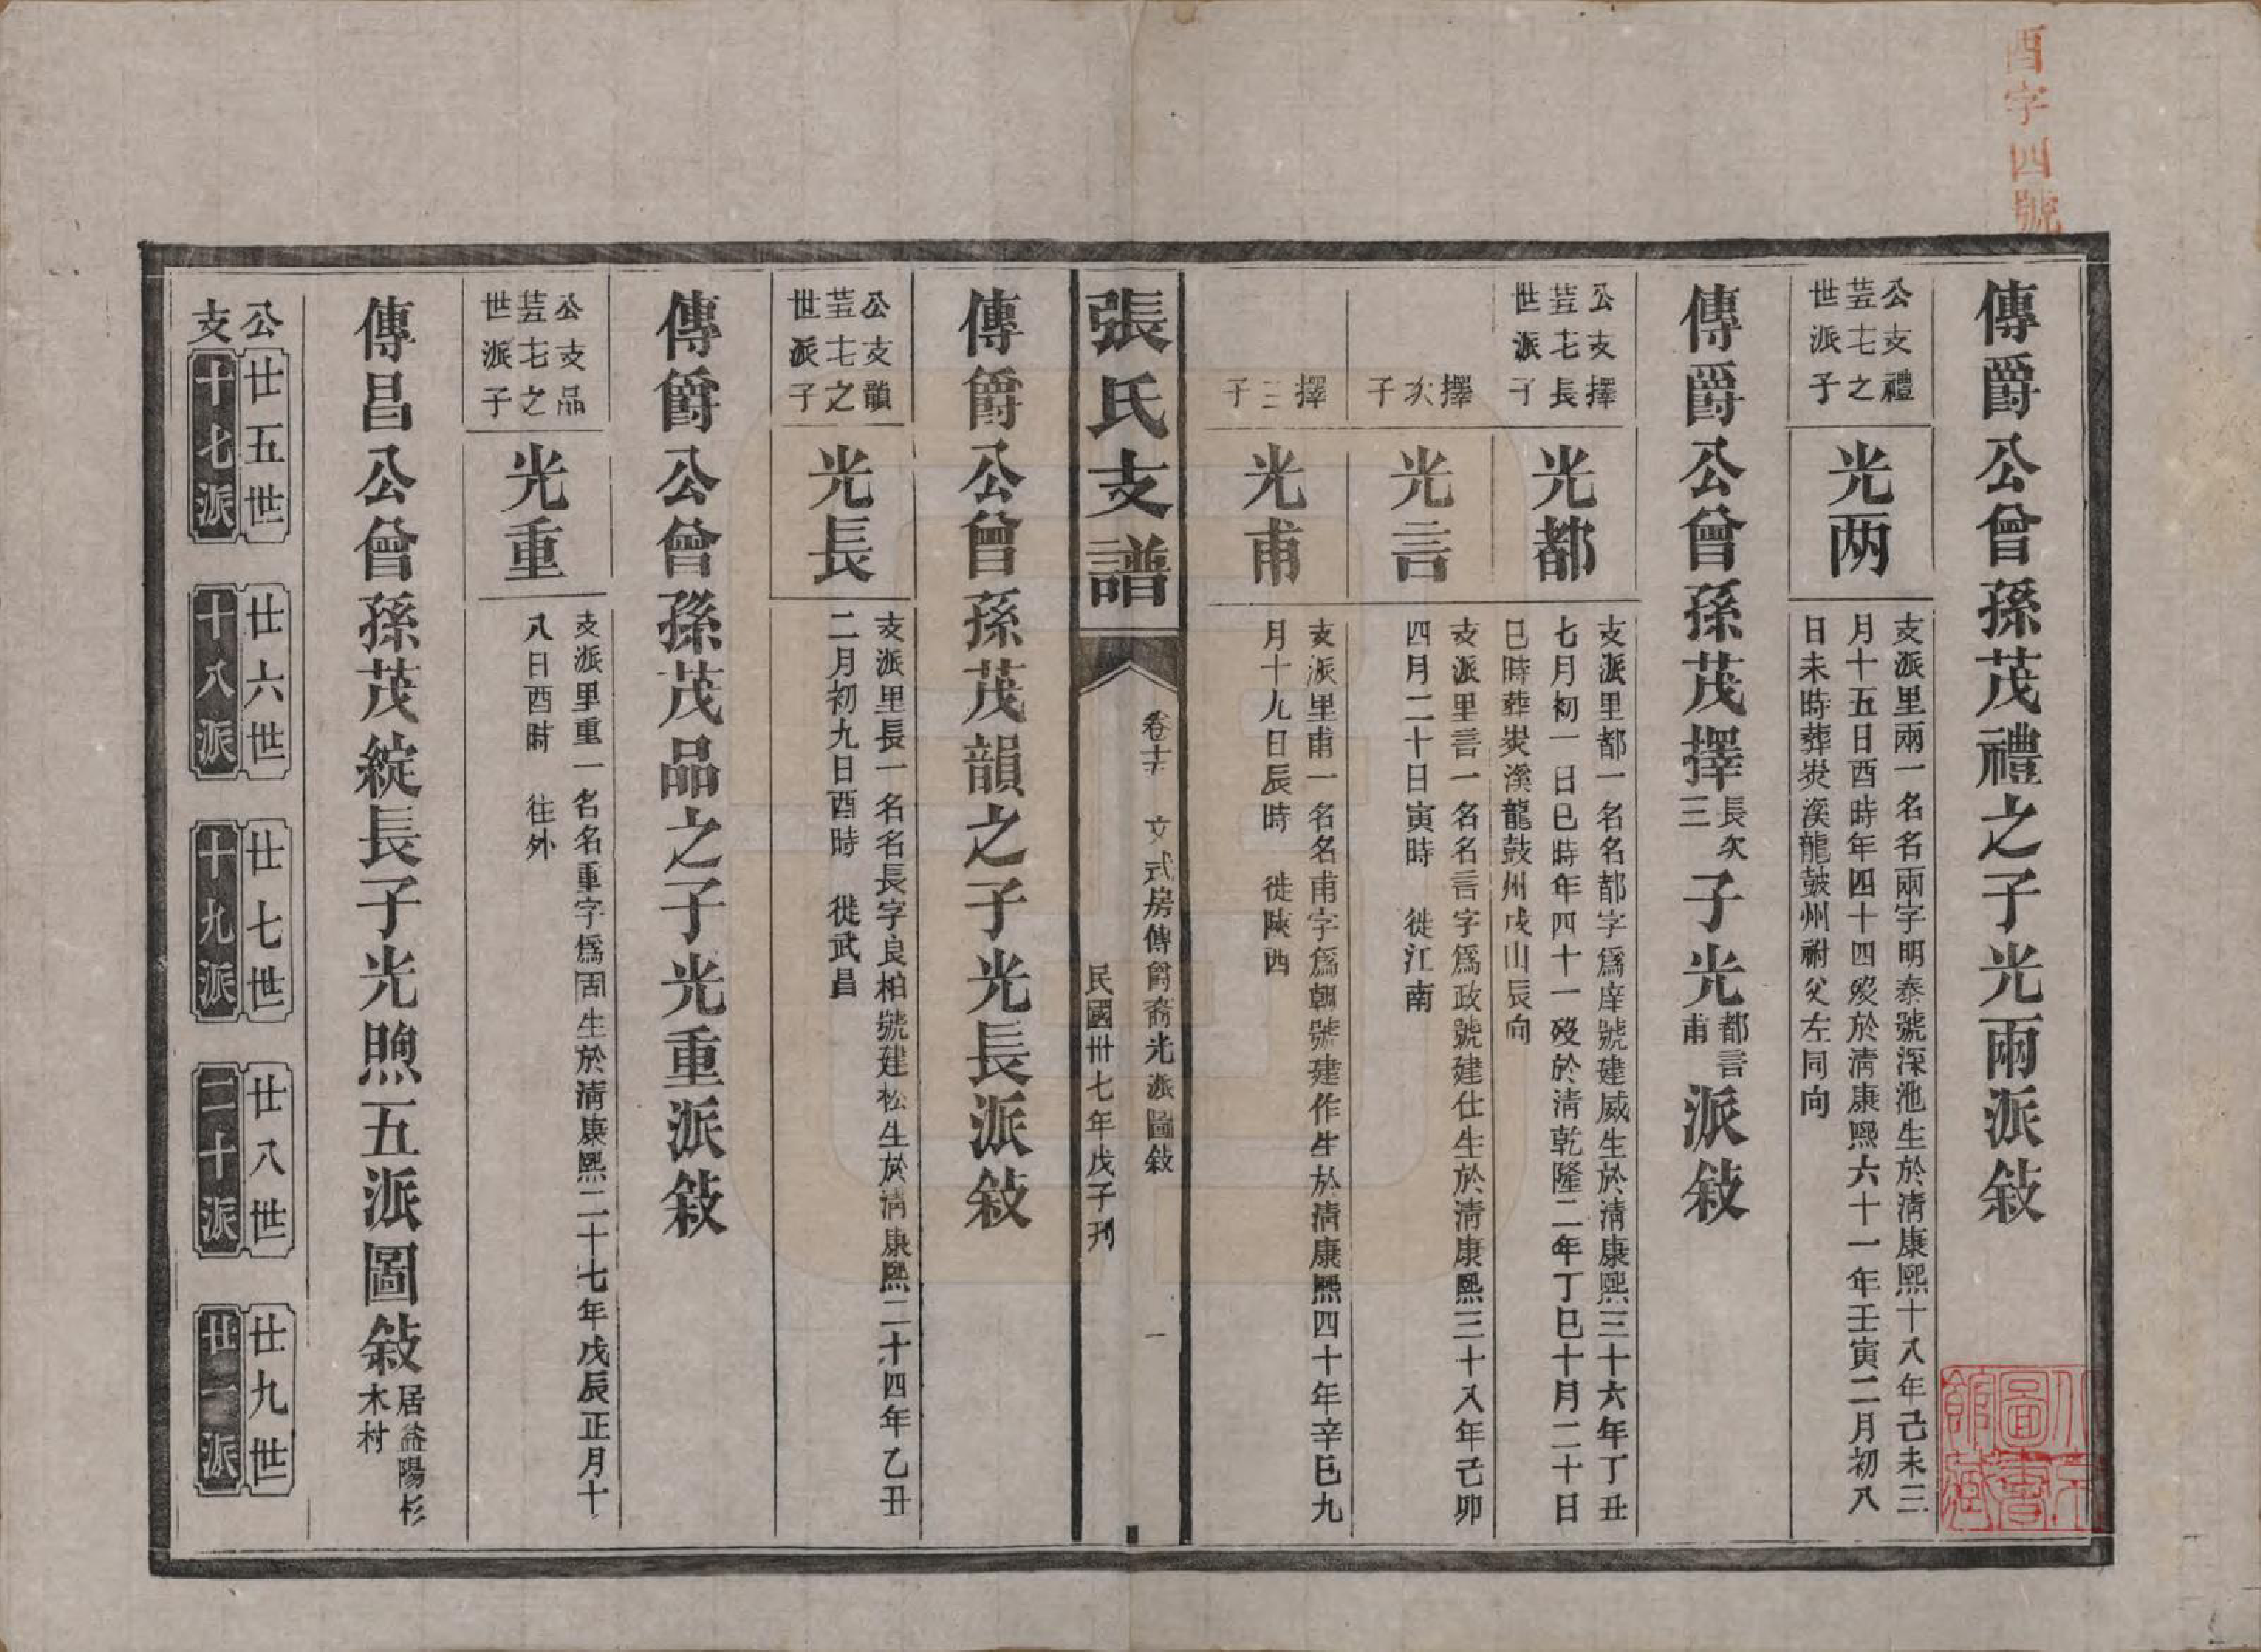 酉字四號
傳爵公曾孫茂禮之子光兩派敘
公支禮
世派子
光两
支派里兩一名名兩字明泰號深池生於清康熙十八年己未三
月十五日酉時年四十四歿於清康熙六十一年壬寅二月初八
日未時葬炭溪龍皷州祔父左同向
傳爵公曾孫茂擇長次三子光都言甫派敘
公支擇
世派子
光都
支派里都一名名都字爲庠號建威生於清康熙三十六年丁丑
七月初一日巳時年四十一歿於清乾隆二年丁巳十月二十日
巳時葬炭溪龍鼓州戌山辰向
擇次子
光言
支派里言一名名言字爲政號建仕生於清康熙三十八年己卯
四月二十日寅時 徙江南
擇三子
光甫
支派里甫一名名甫字爲朝號建作生於清康熙四十年辛巳九
月十九日辰時 徙陝西
張氏支譜
卷十五 文式房傳爵裔光派圖敘 一
民國卅七年戊子刊
傳爵公曾孫茂韻之子光長派敘
公支韻
世派子
光長
支派里長一名名長字良柏號建松生於清康熙二十四年乙丑
二月初九日酉時 徙武昌
傳爵公曾孫茂品之子光重派敘
公支品
世派子
光重
支派里重一名名重字爲固生於清康熙二十七年戊辰正月十
八日酉时 往外
傳昌公曾孫茂綻長子光煦五派圖敘居益陽杉木村
公 廿五世 廿六世 廿七世 廿八世 廿九世
支 十七派 十八派 十九派 二十派 廿一派